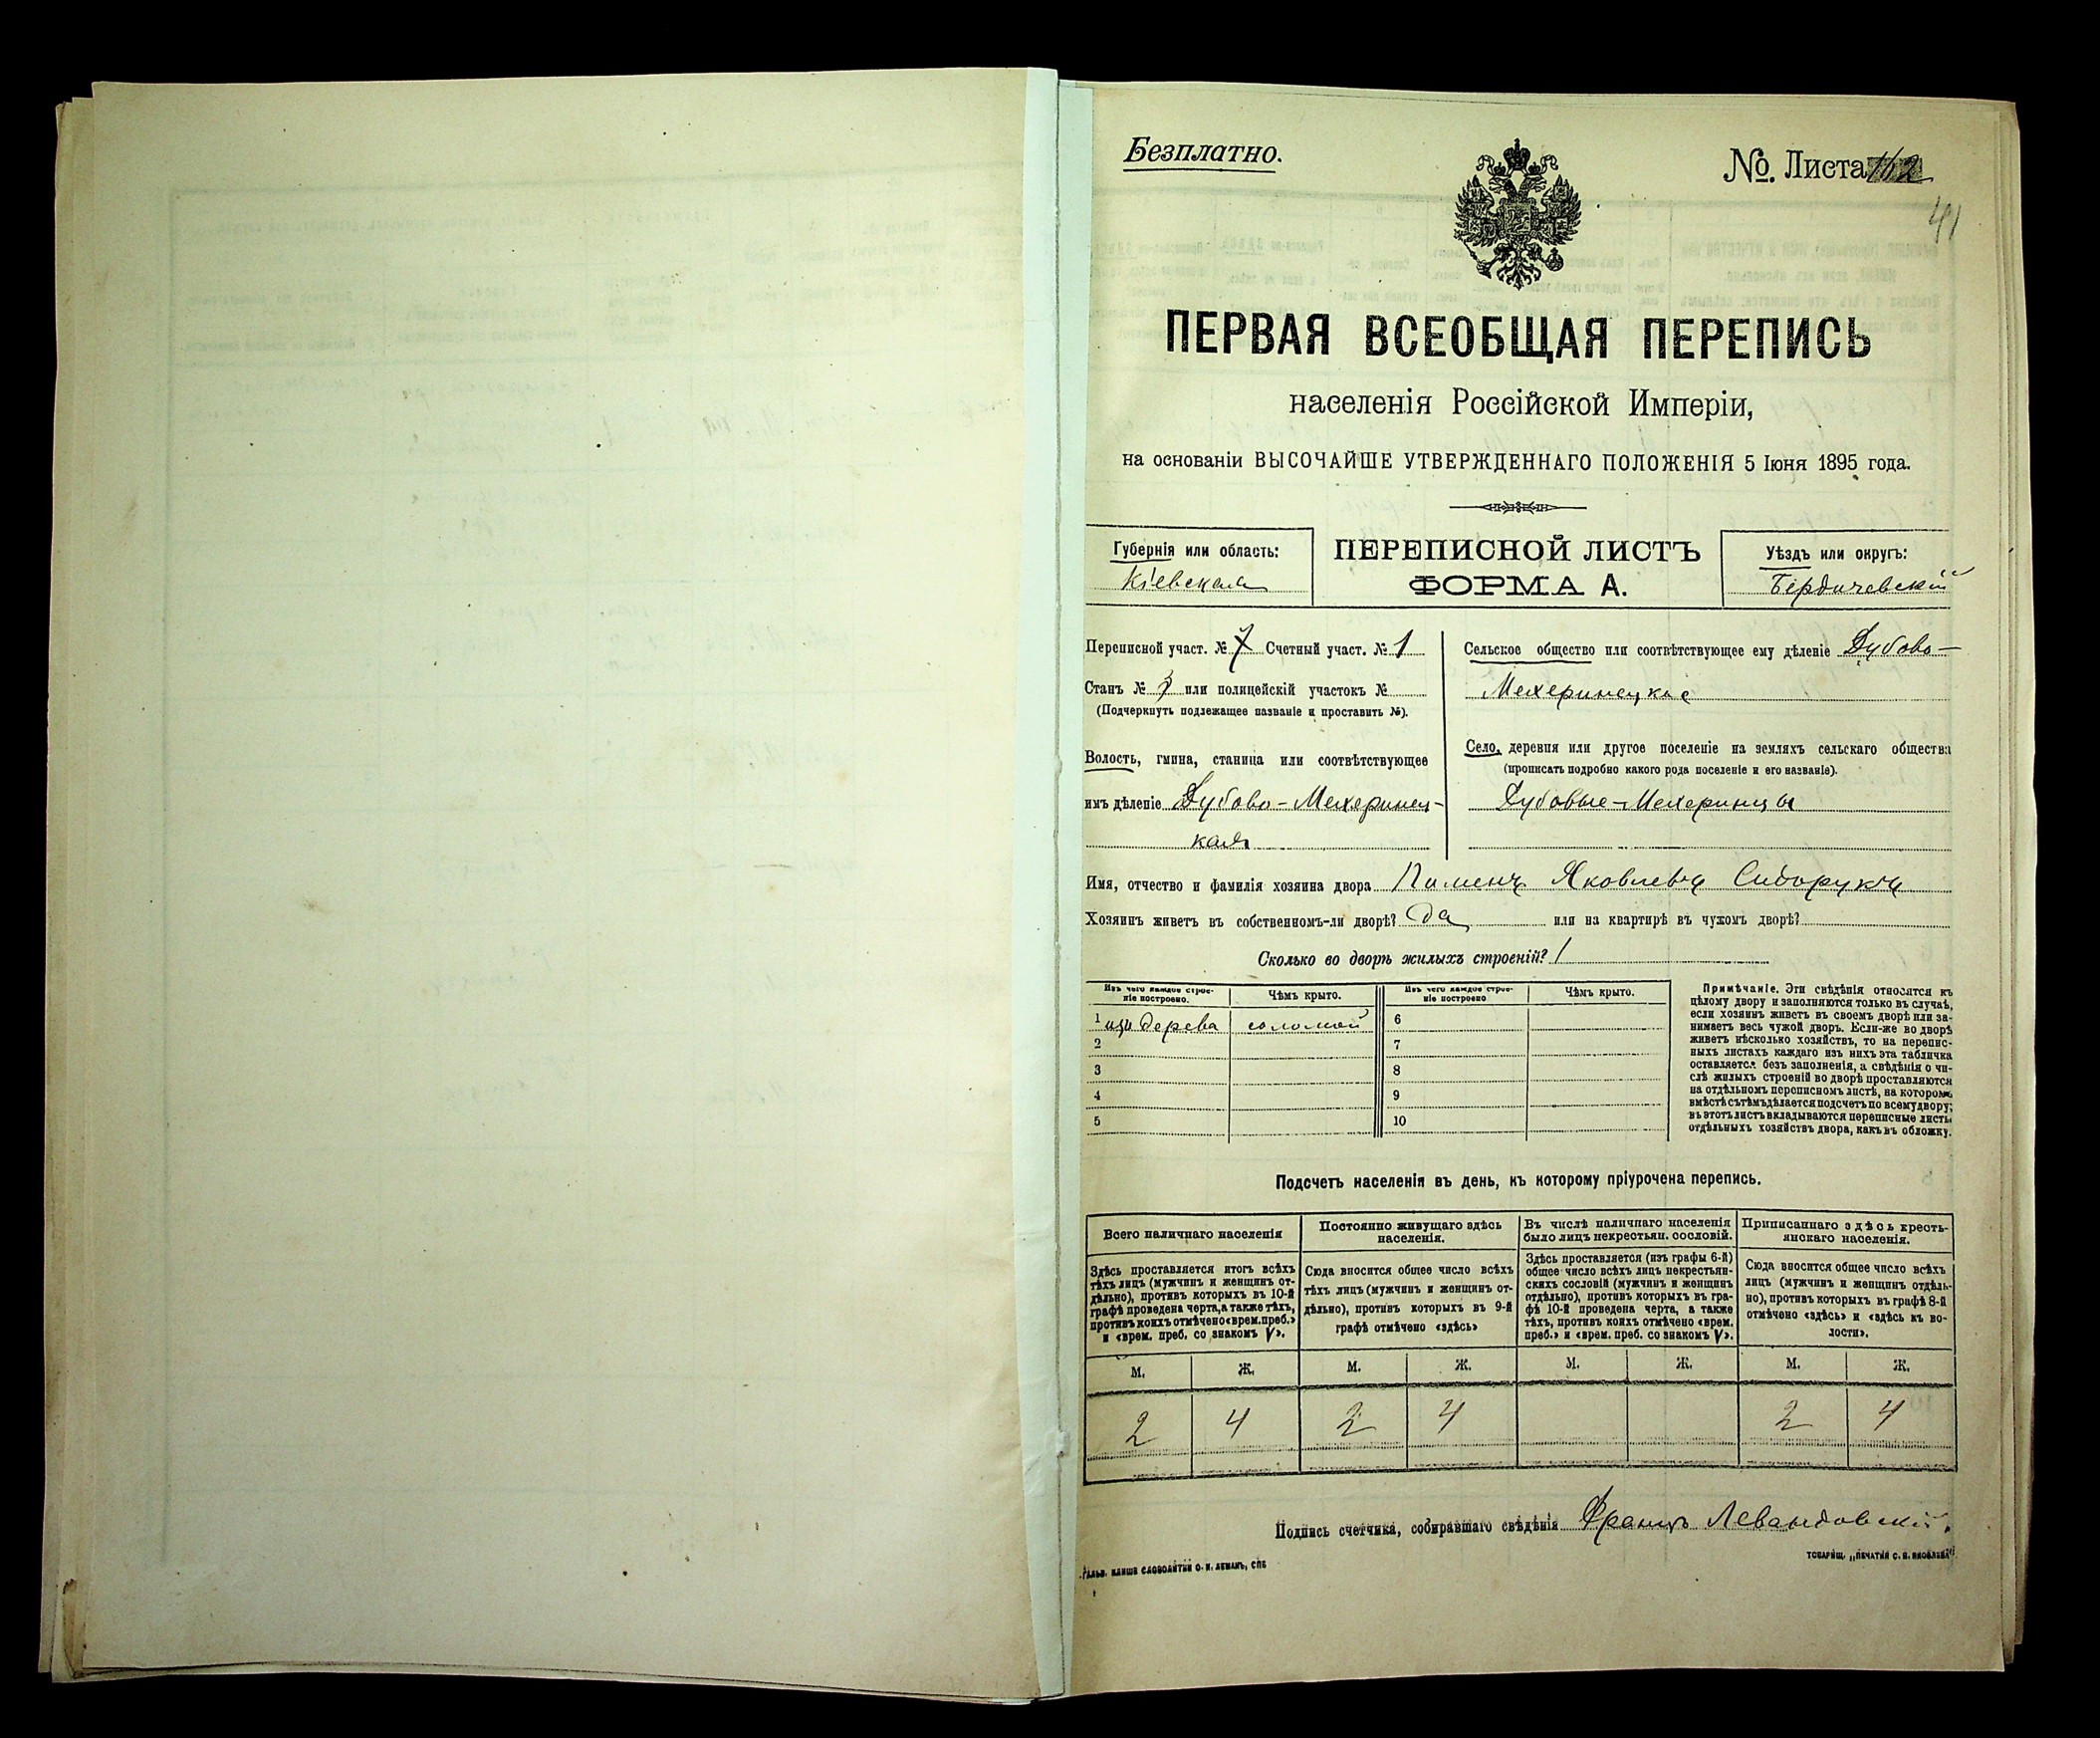 Безплатно.
№. Листа 112
41
ПЕРВАЯ ВСЕОБЩАЯ ПЕРЕПИСЬ
населенія Россійской Имперіи,
на основаніи ВЫСОЧАЙШЕ УТВЕРЖДЕННАГО ПОЛОЖЕНІЯ 5 Іюня 1895 года.
Губернія или область:
Кіевская
ПЕРЕПИСНОЙ ЛИСТЪ
ФОРМА А.
Уѣздъ или округъ:
Бердичевскій
Переписной участ. № 7 Счетный участ. № 1
Станъ № 3 или полицейскій участокъ №
(Подчеркнуть подлежащее названіе и проставить №).
Волость, гмина, станица или соотвѣтствующее
имъ дѣленіе Дубово-Мехеринец-
кая
Сельское общество или соотвѣтствующее ему дѣленіе Дубово-
Мехеринецкое
Село, деревня или другое поселеніе на земляхъ сельскаго общества
(прописать подробно какого рода поселеніе и его названіе).
Дубовые-Мехеринцы
Имя, отчество и фамилія хозяина двора Пименъ Яковлевъ Сидорукъ
Хозяинъ живетъ въ собственномъ-ли дворѣ? да или на квартирѣ въ чужомъ дворѣ?
Сколько во дворѣ жилыхъ строеній? 1
Изъ чего каждое строе-
ніе построено.
Чѣмъ крыто.
Изъ чего каждое строе-
ніе построено
Чѣмъ крыто.
1 изъ дерева соломой 6
2 7
3 8
4 9
5 10
Примѣчаніе. Эти свѣдѣнія относятся къ
цѣлому двору и заполняются только въ случаѣ,
если хозяинъ живетъ въ своемъ дворѣ или за-
нимаетъ весь чужой дворъ. Если-же во дворѣ
живетъ нѣсколько хозяйствъ, то на перепис-
ныхъ листахъ каждаго изъ нихъ эта табличка
оставляется безъ заполненія, а свѣдѣнія о чи-
слѣ жилыхъ строеній во дворѣ проставляются
на отдѣльномъ переписномъ листѣ, на которомъ
вмѣстѣ съ тѣмъ дѣлается подсчетъ по всему двору;
въ этотъ листъ вкладываются переписные листы
отдѣльныхъ хозяйствъ двора, какъ въ обложку.
Подсчетъ населенія въ день, къ которому пріурочена перепись.
Всего наличнаго населенія
Здѣсь проставляется итогъ всѣхъ
тѣхъ лицъ (мужчинъ и женщинъ от-
дѣльно), противъ которыхъ въ 10-й
графѣ проведена черта, а также тѣхъ,
противъ коихъ отмѣчено «врем. преб.»
и «врем. преб. со знакомъ V».
Постоянно живущаго здѣсь
населенія.
Сюда вносится общее число всѣхъ
тѣхъ лицъ (мужчинъ и женщинъ от-
дѣльно), противъ которыхъ въ 9-й
графѣ отмѣчено «здѣсь»
Въ числѣ наличнаго населенія
было лицъ некрестьян. сословій.
Здѣсь проставляется (изъ графы 6-й)
общее число всѣхъ лицъ некрестьян-
скихъ сословій (мужчинъ и женщинъ
отдѣльно), противъ которыхъ въ гра-
фѣ 10-й проведена черта, а также
тѣхъ, противъ коихъ отмѣчено «врем.
преб.» и «врем. преб. со знакомъ V».
Приписаннаго здѣсь кресть-
янскаго населенія.
Сюда вносится общее число всѣхъ
лицъ (мужчинъ и женщинъ отдѣль-
но), противъ которыхъ въ графѣ 8-й
отмѣчено «здѣсь» и «здѣсь къ во-
лости».
М. Ж. М. Ж. М. Ж. М. Ж.
2 4 2 4 2 4
Подпись счетчика, собиравшаго свѣдѣнія Францъ Левандовскій.
Гальв. клише словолитни О. И. Леманъ, СПБ
Товарищ. „Печатня С. П. Яковлева“